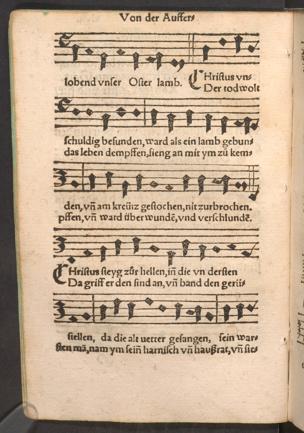 Von der Auffers
lobend vnser Oster lamb. CHristus vns
Der tod wolt
schuldig befunden, ward als ein lamb gebuns
das leben dempffen, fieng an mit ym zů kems
den, vñ am kreütz gestochen, nit zurbrochen.
pffen, vñ ward überwundē, vnd verschlundē.
CHristus steyg zůr hellen, in die vn dersten
Da griff er den sind an, vñ band den gerüs
stellen, da die alt vetter gefangen, sein war
sten mā, nam ym sein harnisch vñ haußrat, vñ sie-